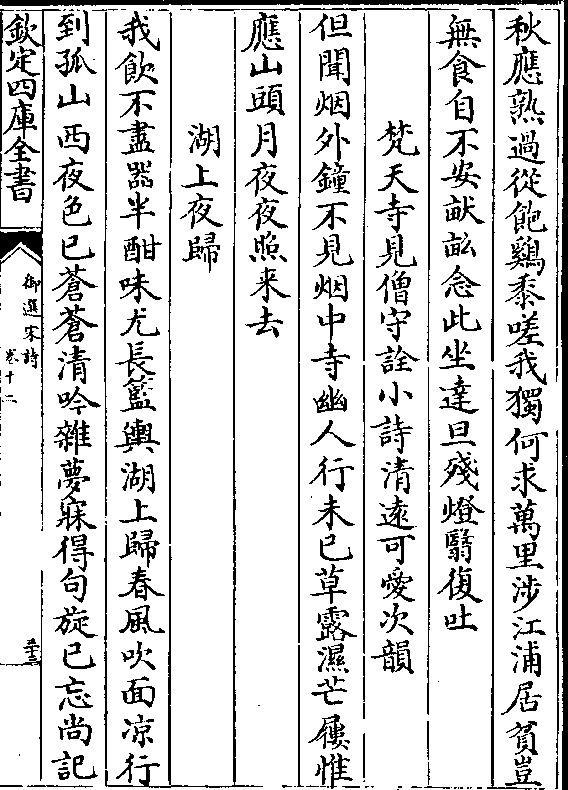 秋應熟過從飽鷄黍嗟我獨何求萬里涉江浦居貧豈
無食自不安畎畝念此坐達旦殘燈翳復吐
梵天寺見僧守詮小詩清逺可愛次韻
但聞烟外鐘不見烟中寺幽人行未已草露濕芒屨惟
應山頭月夜夜照来去
湖上夜歸
我飲不盡器半酣味尤長籃輿湖上歸春風吹面凉行
到孤山西夜色已蒼蒼清吟雜夢寐得句旋已忘尚記
欽定四庫全書
御選宋詩
卷十二